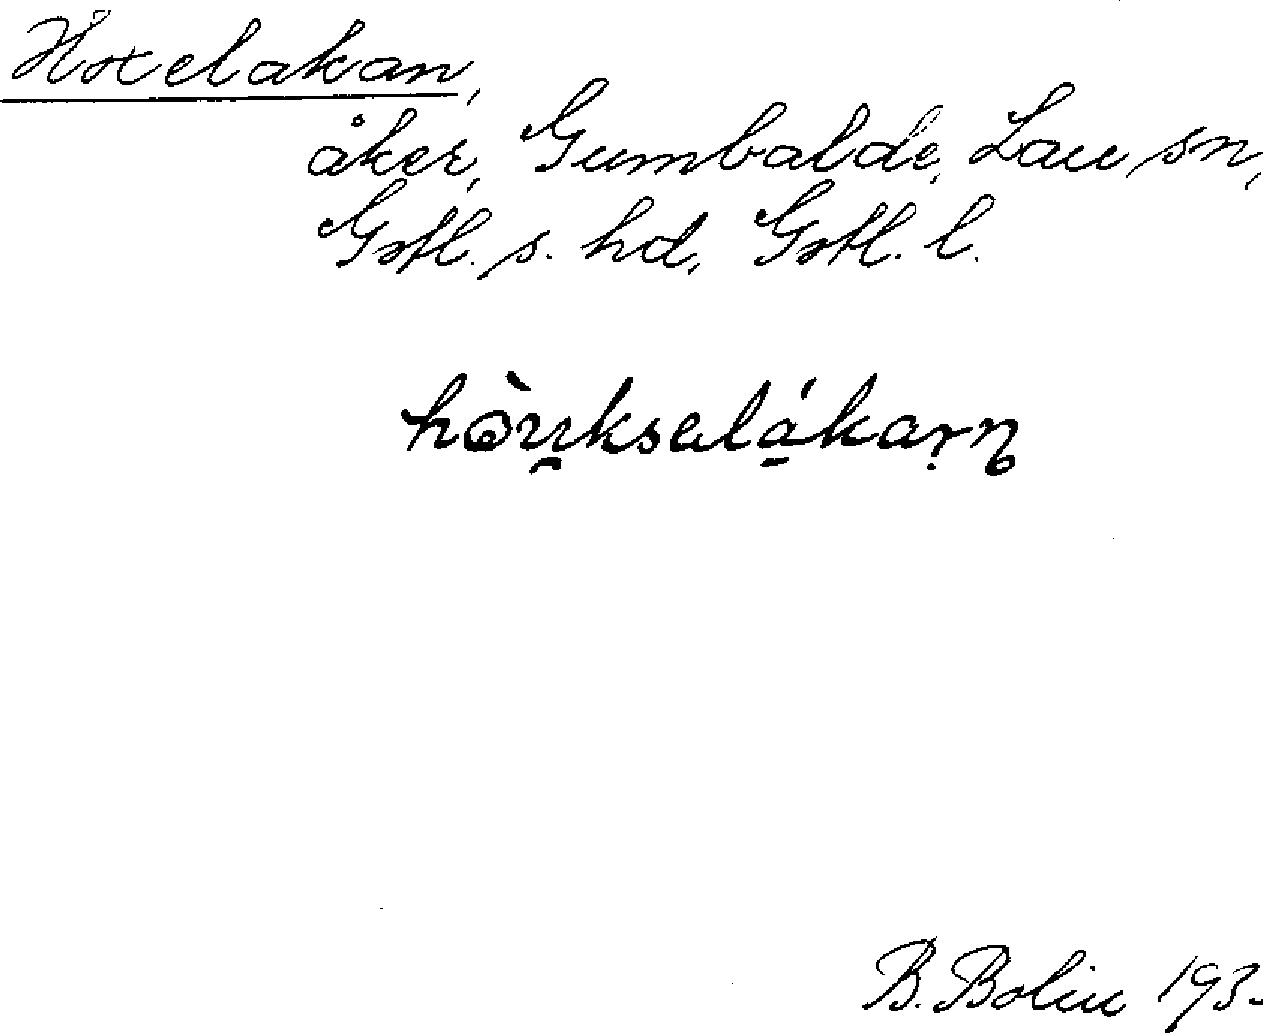 Hoxelakan,
åker, Gumbalde, Lau sn,
Gotl. s. hd, Gotl. l.
hòu̯kselákaṛn
B. Bolin 193